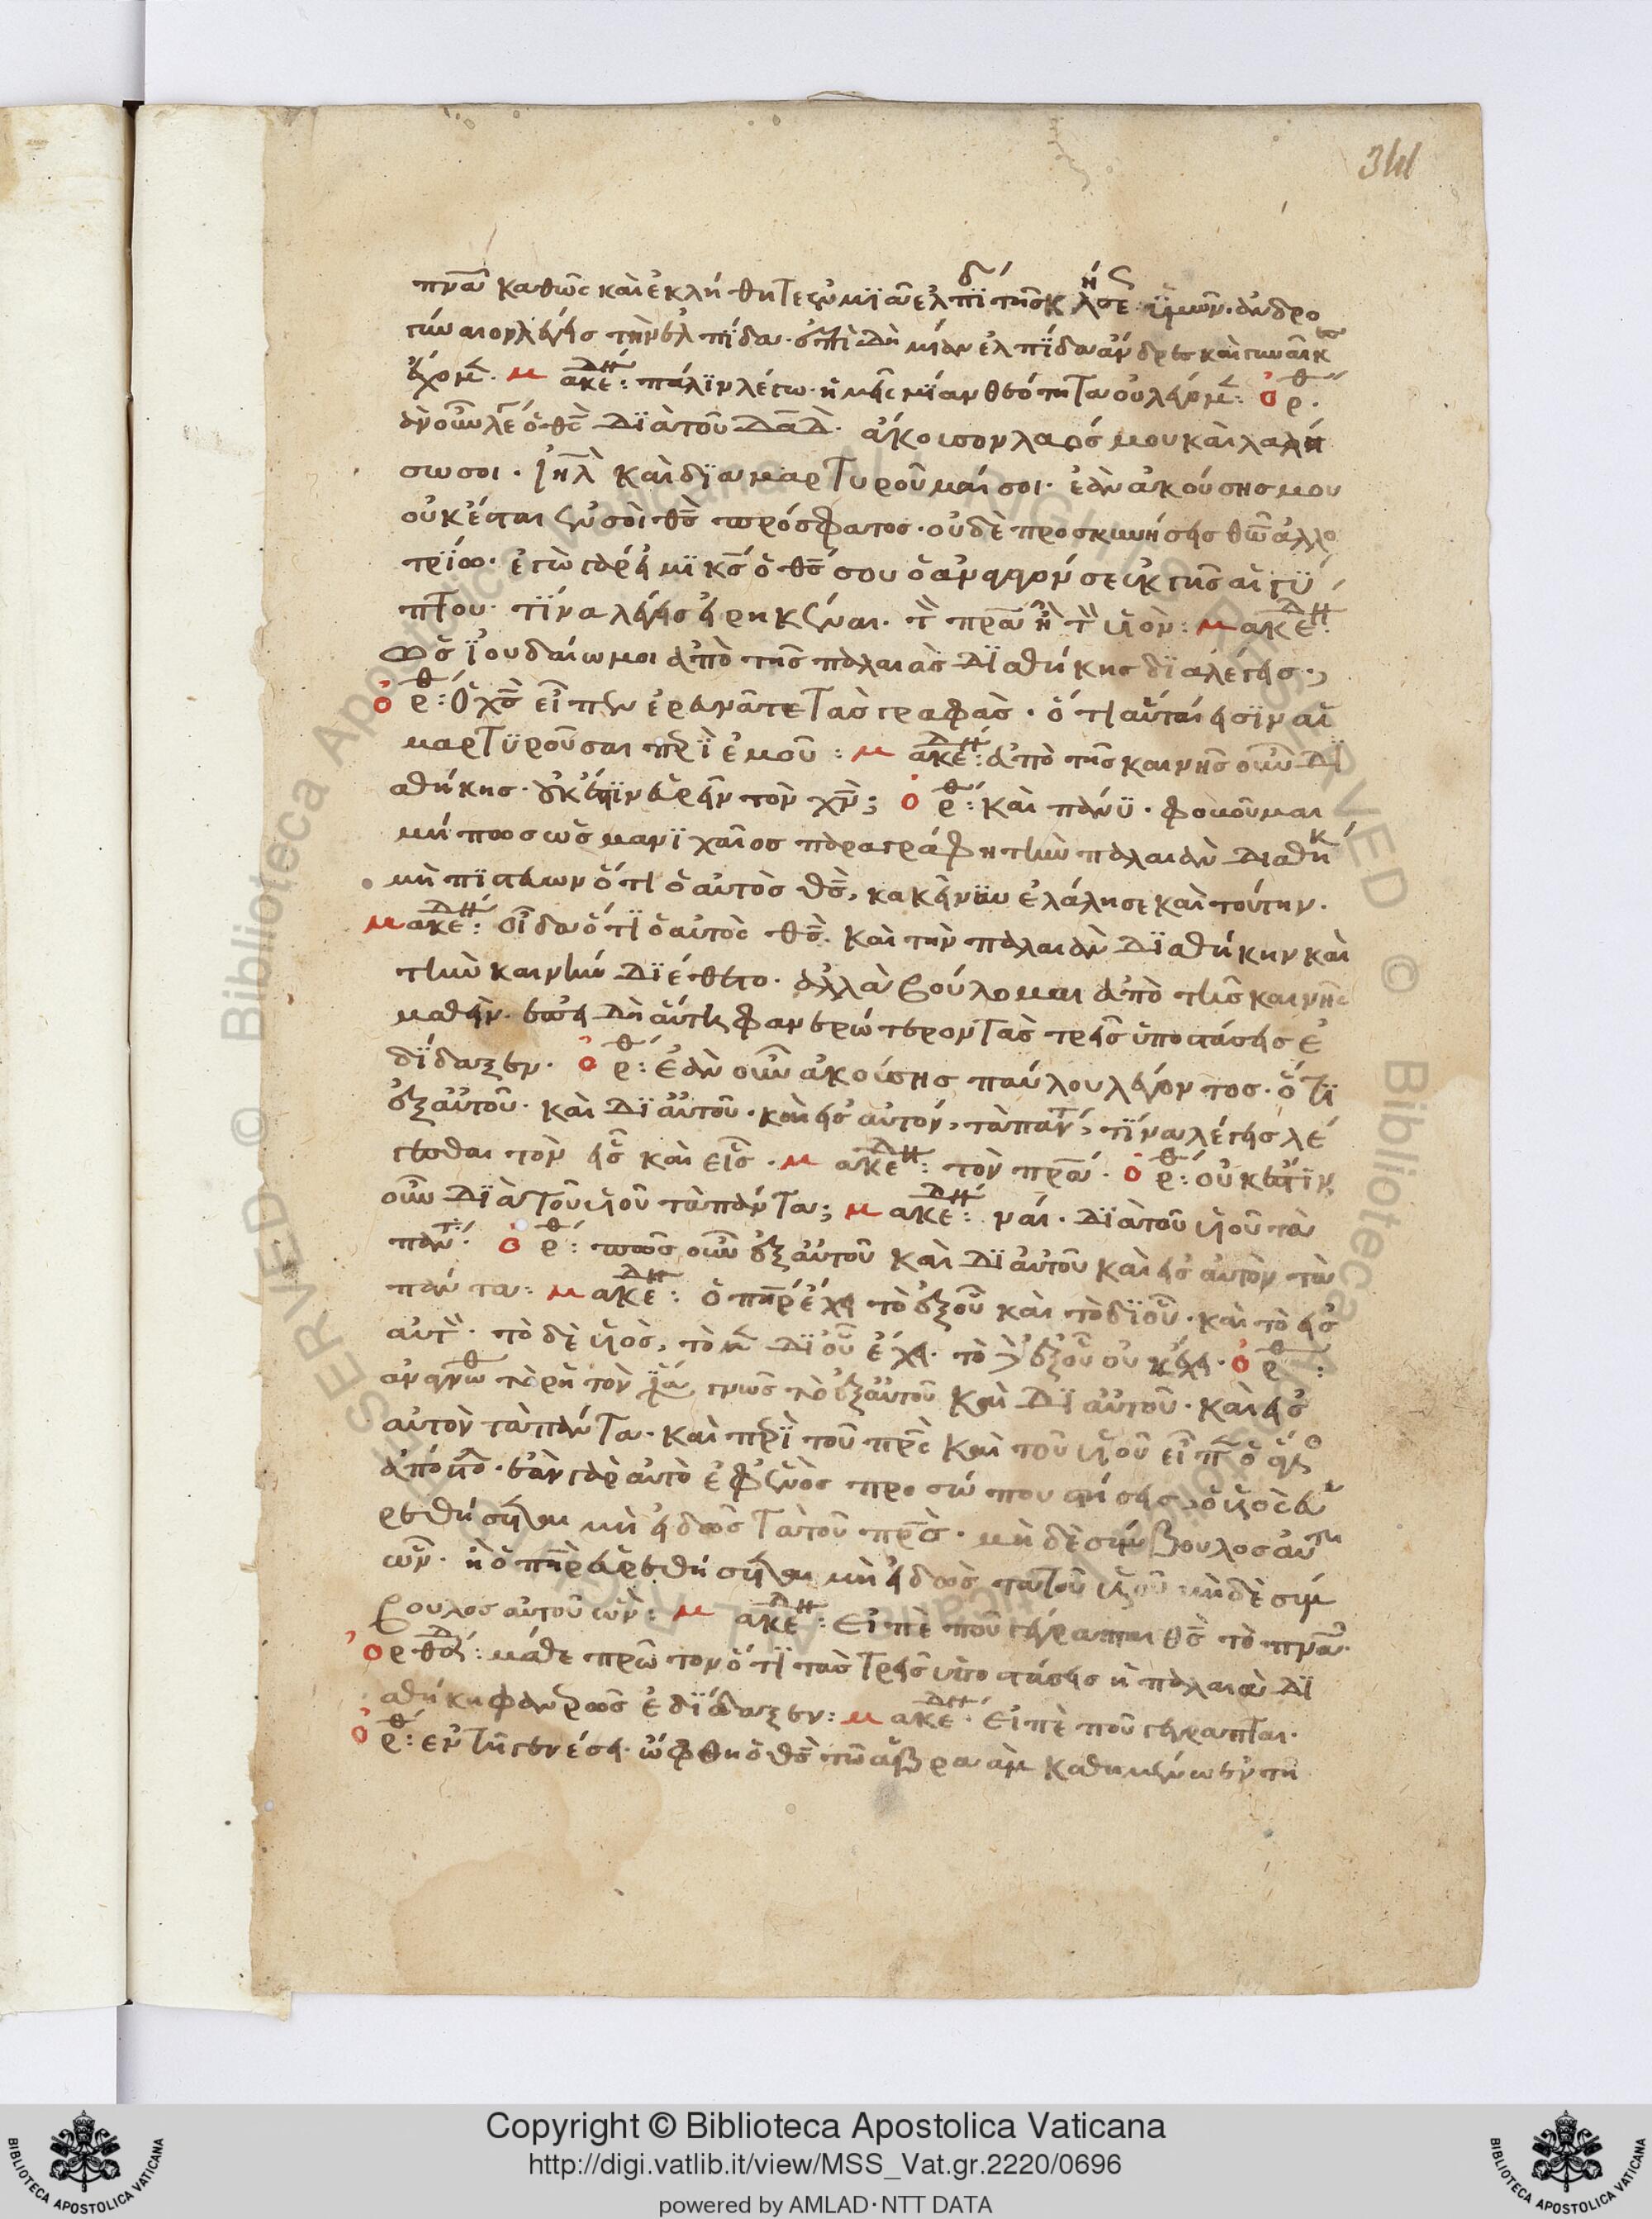 341
πνᾶ καθὼς καὶ ἐκλήθητε ἐν μϊᾶ ἐλπϊδι τῆς κλήσε ὑμῶν. ἀνδρο
γύναιον λέγεις τὴν ἐλπϊδα. ἐπειδὴ μίαν ἐλπϊδα ἄνδρες καὶ γυναῖκες
ἔχομεν. μακεδ: πάλϊν λέγω. ἡμεῖς μϊαν θεότητα οὐ λέγομεν: ὀρθ.
ἀκουσον λαός μου καὶ λαλή
σω σοι. ιηλ καὶ δϊαμαρτυροῦμαί σοι. ἐὰν ἀκούσης μου
οὐκ ἔσται ἐν σοὶ θς πρόσφατος. οὐδὲ προσκυνήσεις θῶ ἀλλο
τρϊω. ἐγὼ γάρ εἰμϊ κς ὁ θς σου ὁ ἀναγαγών σε ἐκ γῆς αἰγύ
πτου. τϊνα λέγεις εἰρηκέναι. τὸν πρα ἢ τὸν υἱόν: μακεδ:
ὡς ϊουδαίω μοι ἀπὸ τῆς παλαιᾶς δϊαθήκης δϊαλέγεις.,
ὀρθ: ὁ χς εἶπεν ἐρευνᾶτε τὰς γραφάς. ὅτι αὗταί εἰσϊν αἱ
μαρτϋροῦσαι περϊ ἐμοῦ: μακεδ: ἀπὸ τῆς καινῆς οὖν δϊ
αθήκης. οὐκ ἔστϊν εὑρεῖν τὸν χν; ὀρθ: καὶ πάνϋ. φοβοῦμαι
μήπως ὡς μανϊχαῖος παραγράφη τὴν παλαιὰν διαθήκ
μὴ πϊστεύων ὅτι ὁ αὐτὸς θς, κακείνην ἐλάλησε καὶ τούτην.
μακεδ: οἶδα ὅτϊ ὁ αὐτὸς θς. καὶ τὴν παλαιὰν δϊαθήκην καὶ
τὴν καινὴν δϊέθετο. ἀλλὰ βούλομαι ἀπὸ τῆς καινῆς
μαθεῖν. ἐπειδὴ αὕτη φανερώτερον τὰς τρεῖς ὑποστάσεις ἐ
δϊδαξεν. ὀρθ: ἐὰν οὖν ἀκούσης παύλου λέγοντος. ὅτϊ
ἐξ αὐτοῦ. καὶ δϊ αὐτοῦ. καὶ εἰς αὐτόν, τὰ πάντ, τϊνα λέγεις λέ
γεσθαι τὸν εἷς καὶ εἷς. μακεδ: τὸν πρα. ὀρθ: οὐκ ἔστϊν
οὖν δϊὰ τοῦ υἱοῦ τὰ πάντα; μακεδ: ναί. δϊὰ τοῦ υἱοῦ τὰ
πάντ. ὀρθ: πῶς οὖν ἐξ αὐτοῦ καὶ δϊ αὐτοῦ καὶ εἰς αὐτὸν τὰ
πάντα: μακεδ: ὁ πηρ ἔχει τὸ ἐξ οὗ καὶ τὸ δϊ οὗ. καὶ τὸ εἰς
αὐτὸν. τὸ δὲ υἱὸς, τὸ μὲν δϊ οὗ ἔχει. τὸ δὲ ἐξ οὗ οὐκ ἔχει. ὀρθ:
καὶ δϊ αὐτοῦ. καὶ εἰς
αὐτὸν τὰ πάντα. καὶ περϊ τοῦ πρς καὶ τοῦ υἱοῦ εἶπεν ὁ
ἐὰν γὰρ αὐτὸ ἐφ ἑνὸς προσώπου στήσης, ὁ υἱὸς εὑ
ρεθήσεται μὴ εἰδὼς τὰ τοῦ πρς. μηδὲ σύμβουλος αὐτοῦ
ὤν. ἢ ὁ πηρ εὑρεθήσεται μὴ εἰδὼς τὰ τοῦ υἱοῦ μηδὲ σύμ
βουλος αὐτοῦ ὤν: μακεδ: εἰπὲ ποῦ γέγραπται θς τὸ πνα.
ὀρθοδ: μάθε πρῶτον ὅτϊ τὰς τρεῖς ὑποστάσεις ἡ παλαιὰ δϊ
αθήκη φανερῶς ἐδϊδαξεν: μακεδ. εἰπὲ ποῦ γέγραπται.
ὀρθ: ἐν τῆ γενέσει. ὤφθη ὁ θς τῶ ἀβραὰμ καθημένω ἐν τῆ
Copyright © Biblioteca Apostolica Vaticana
http://digi.vatlib.it/view/MSS_Vat.gr.2220/0696
powered by AMLAD·NTT DATA
BIBLIOTECA APOSTOLICA VATICANA
BIBLIOTECA APOSTOLICA VATICANA